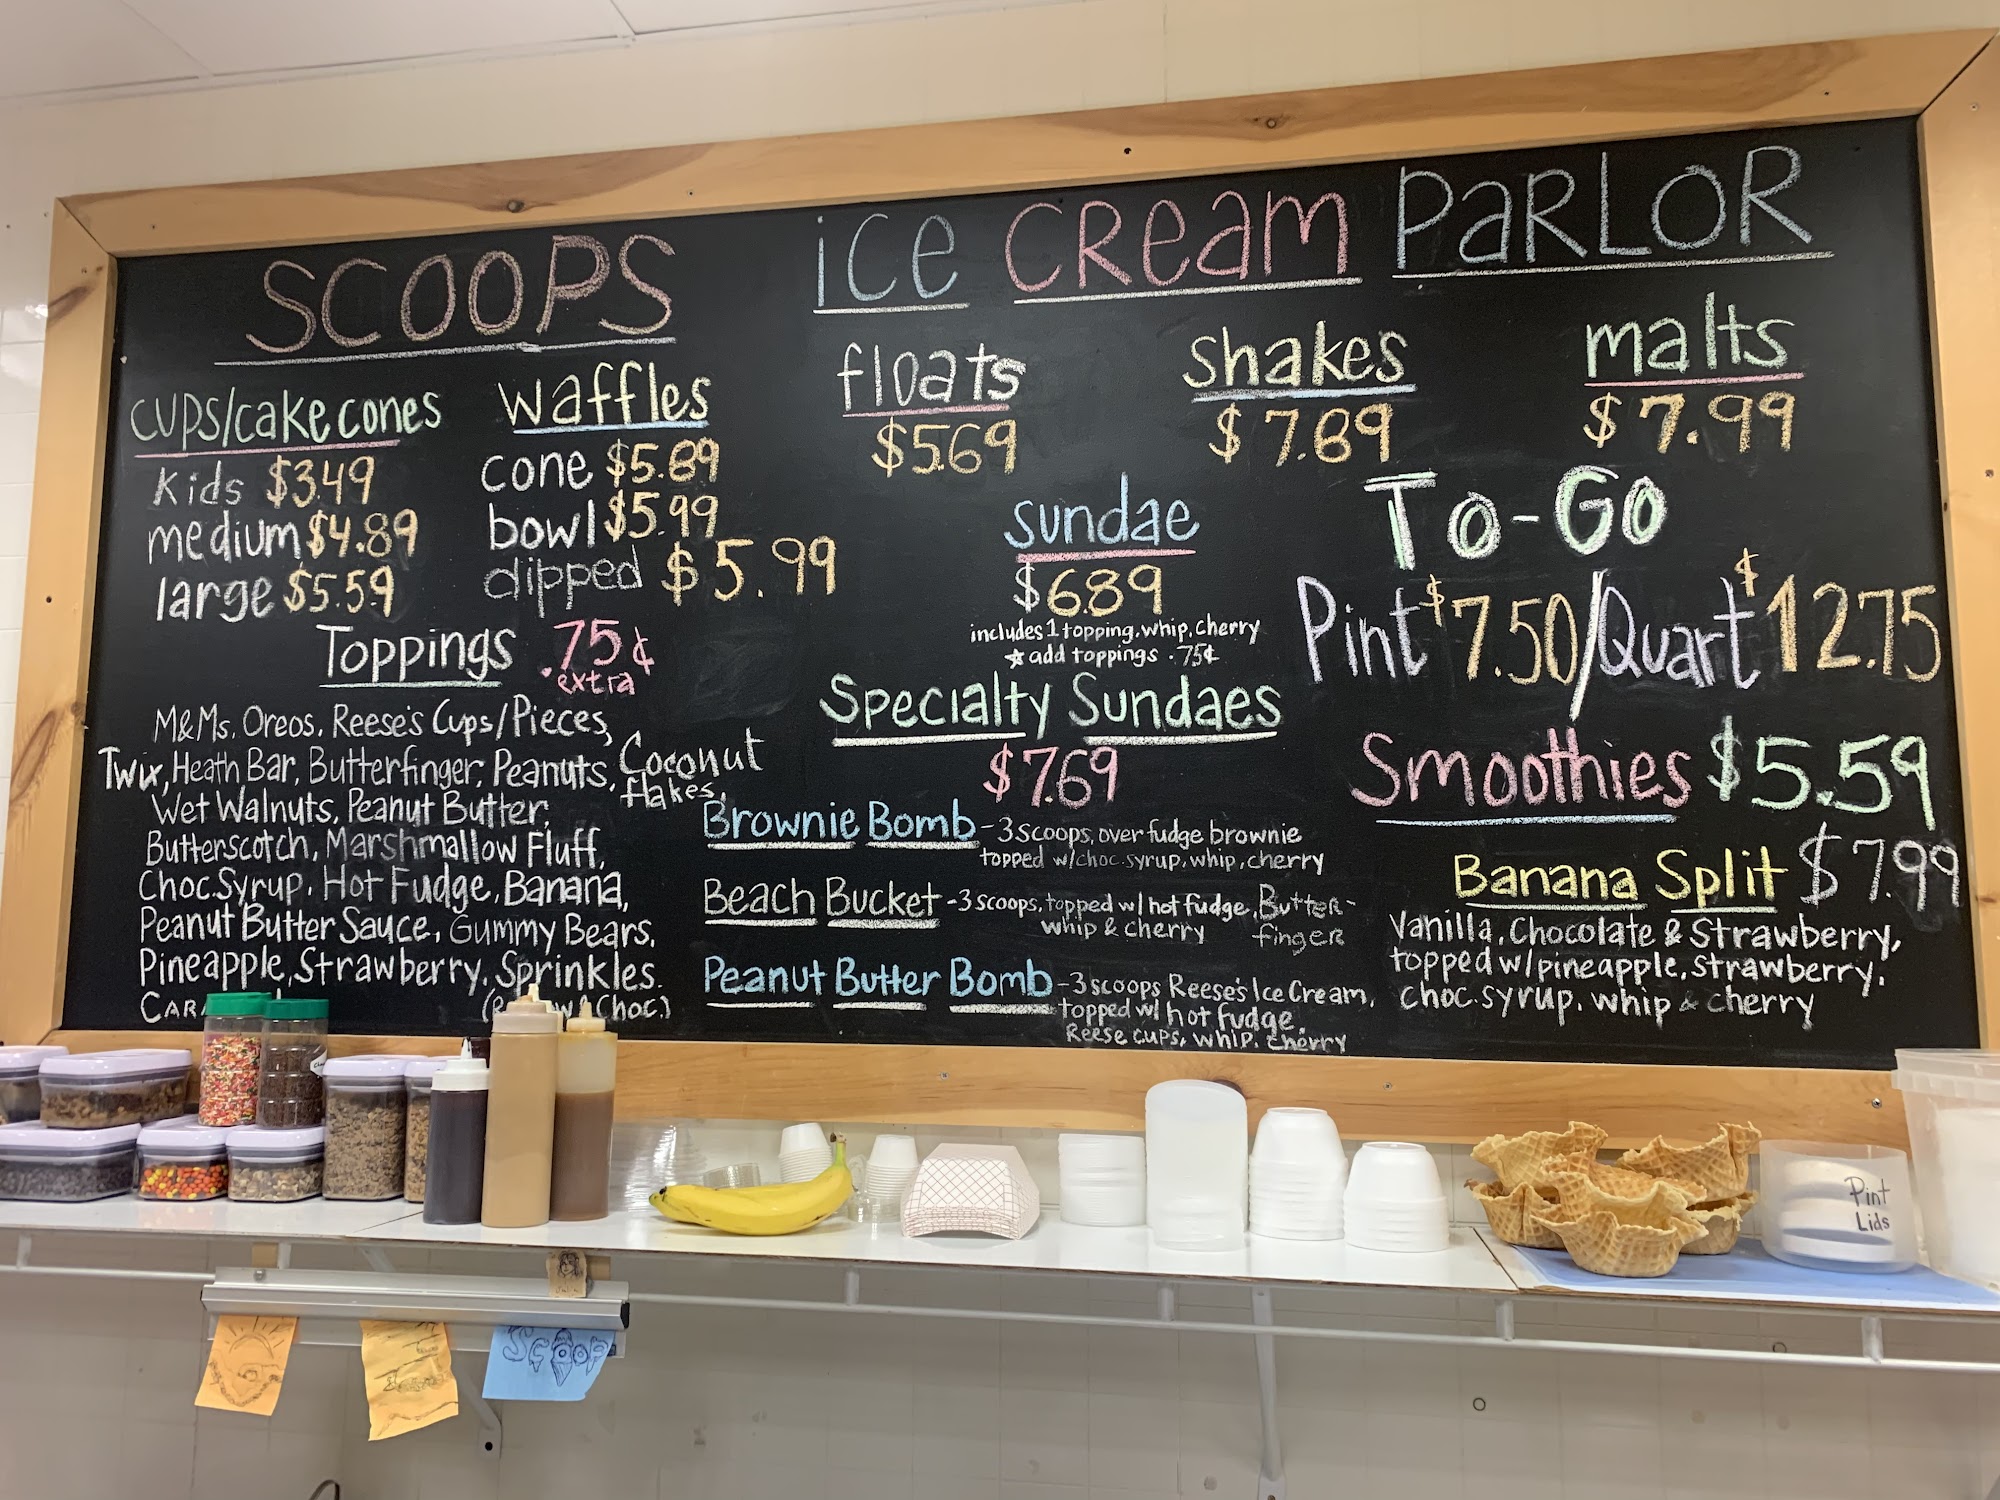 SCOOPS
iCe CReam PaRLOR
cups/cake cones
Kids $3.49
medium $4.89
large $5.59
waffles
cone $5.89
bowl $5.99
dipped $5.99
Toppings .75¢
extra
M&Ms, Oreos, Reese's Cups/Pieces,
Twix, Heath Bar, Butterfinger, Peanuts, Coconut flakes,
Wet Walnuts, Peanut Butter,
Butterscotch, Marshmallow Fluff,
Choc. Syrup, Hot Fudge, Banana,
Peanut Butter Sauce, Gummy Bears,
Pineapple, Strawberry, Sprinkles.
Choc.)
floats
$5.69
shakes
$7.89
malts
$7.99
sundae
$6.89
includes 1 topping, whip, cherry
☆ add toppings .75¢
Specialty Sundaes
$7.69
Brownie Bomb - 3 scoops, over fudge brownie
topped w/choc. syrup, whip, cherry
Beach Bucket - 3 scoops, topped w/ hot fudge, Butter-
whip & cherry finger
Peanut Butter Bomb - 3 scoops Reese's Ice Cream,
topped w/ hot fudge,
Reese cups, whip, cherry
To-Go
Pint $7.50/Quart $12.75
Smoothies $5.59
Banana Split $7.99
Vanilla, Chocolate & Strawberry,
topped w/pineapple, strawberry,
choc. syrup, whip & cherry
Pint
Lids
Scoop